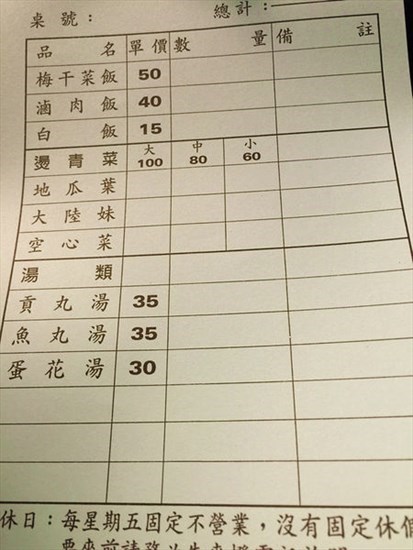 桌號： 總計：
品名 單價 數量 備註
梅干菜飯 50
滷肉飯 40
白飯 15
燙青菜 大100 中80 小60
地瓜葉
大陸妹
空心菜
湯類
貢丸湯 35
魚丸湯 35
蛋花湯 30
休日：每星期五固定不營業，沒有固定休假